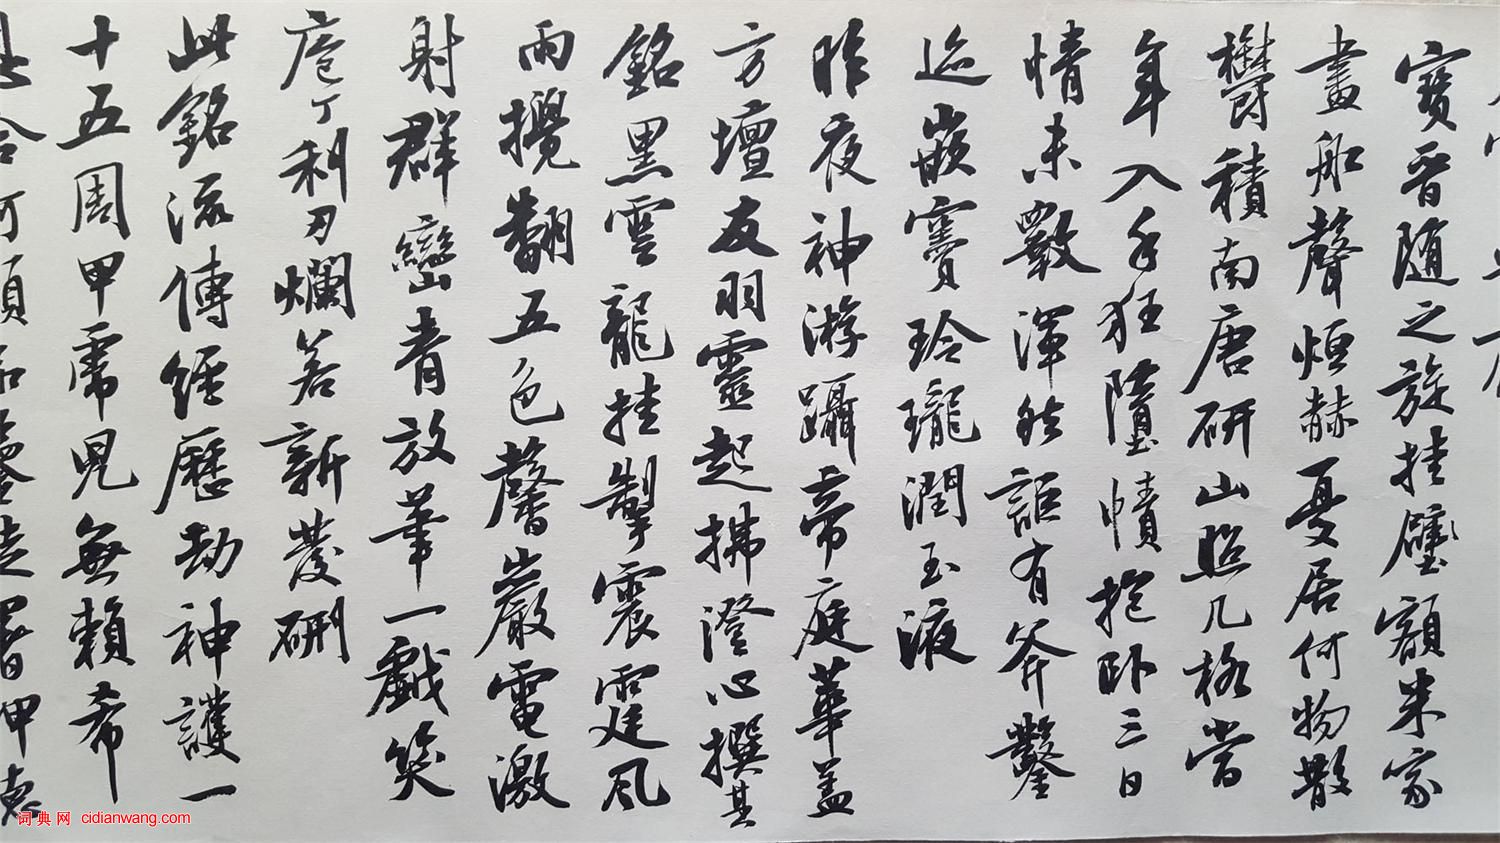 寶晉隨之旋挂壁額米家
畫船聲烜赫憂居何物散
鬱積南唐研山照几格當
年入手狂墮幘抱臥三日
情未斁渾然詎有斧鑿
迹嵌竇玲瓏潤玉液
昨夜神游躡帝庭華蓋
方壇友羽靈起拂澄心撰其
銘黑雲龍挂掣震霆風
雨攪翻五色馨巖電激
射群巒青放筆一戲笑
庖丁利刃爛若新發硎
此銘流傳經歷劫神護一
十五周甲虎兒無賴希
词典网 cidianwang.com